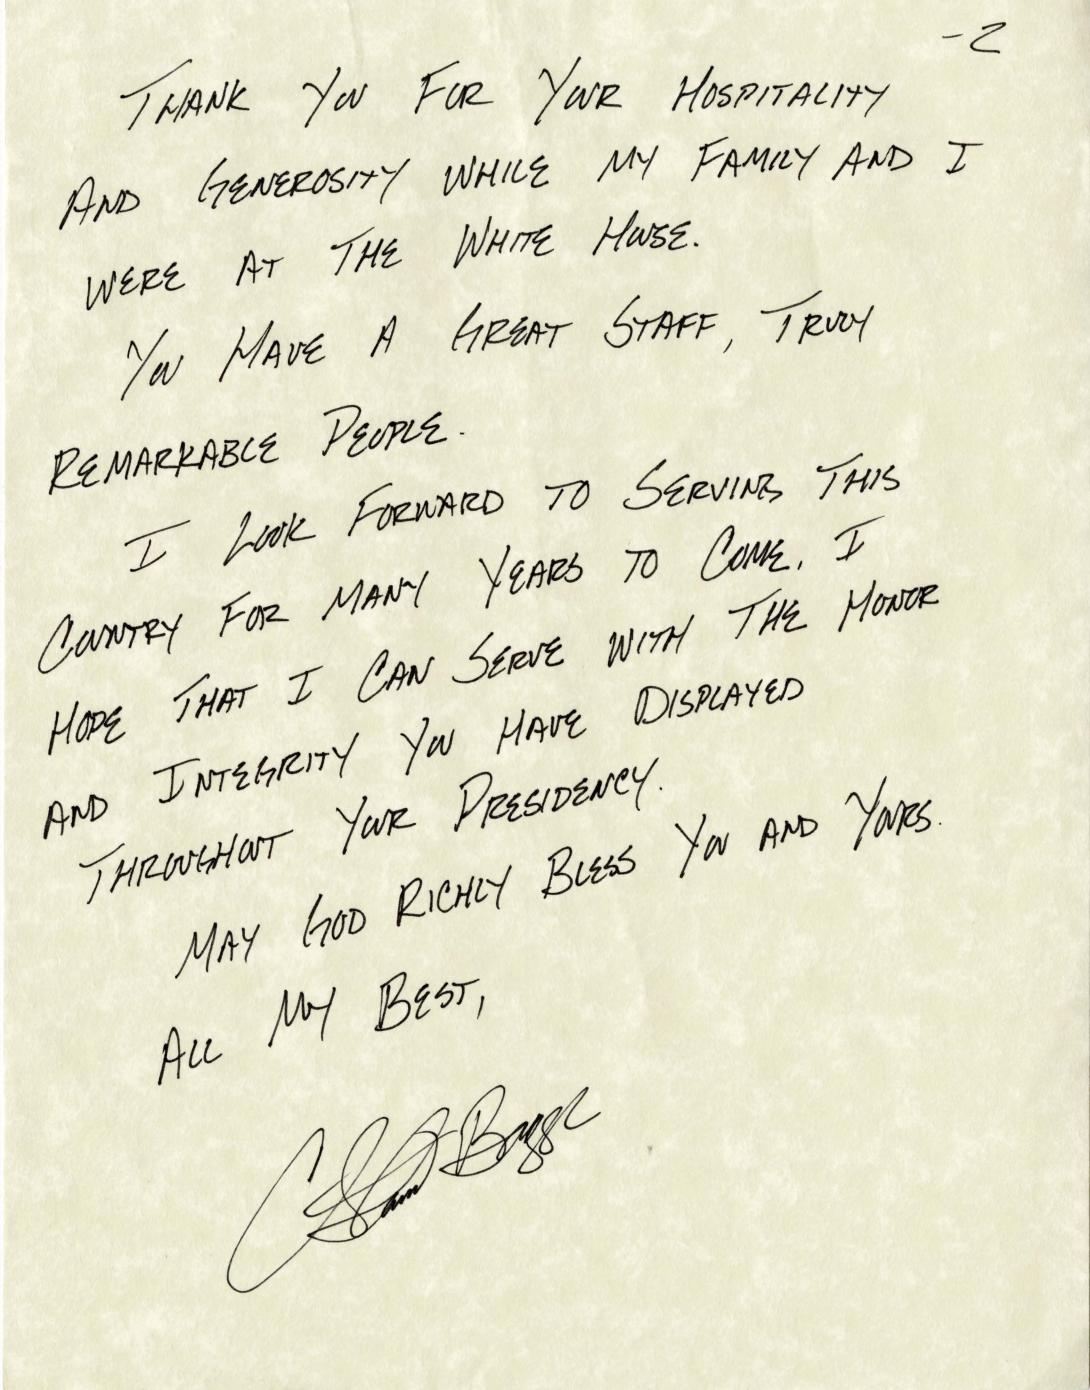 -2
THANK YOU FOR YOUR HOSPITALITY
AND GENEROSITY WHILE MY FAMILY AND I
WERE AT THE WHITE HOUSE.
YOU HAVE A GREAT STAFF, TRULY
REMARKABLE PEOPLE.
I LOOK FORWARD TO SERVING THIS
COUNTRY FOR MANY YEARS TO COME. I
HOPE THAT I CAN SERVE WITH THE HONOR
AND INTEGRITY YOU HAVE DISPLAYED
THROUGHOUT YOUR PRESIDENCY.
MAY GOD RICHLY BLESS YOU AND YOURS.
ALL MY BEST,